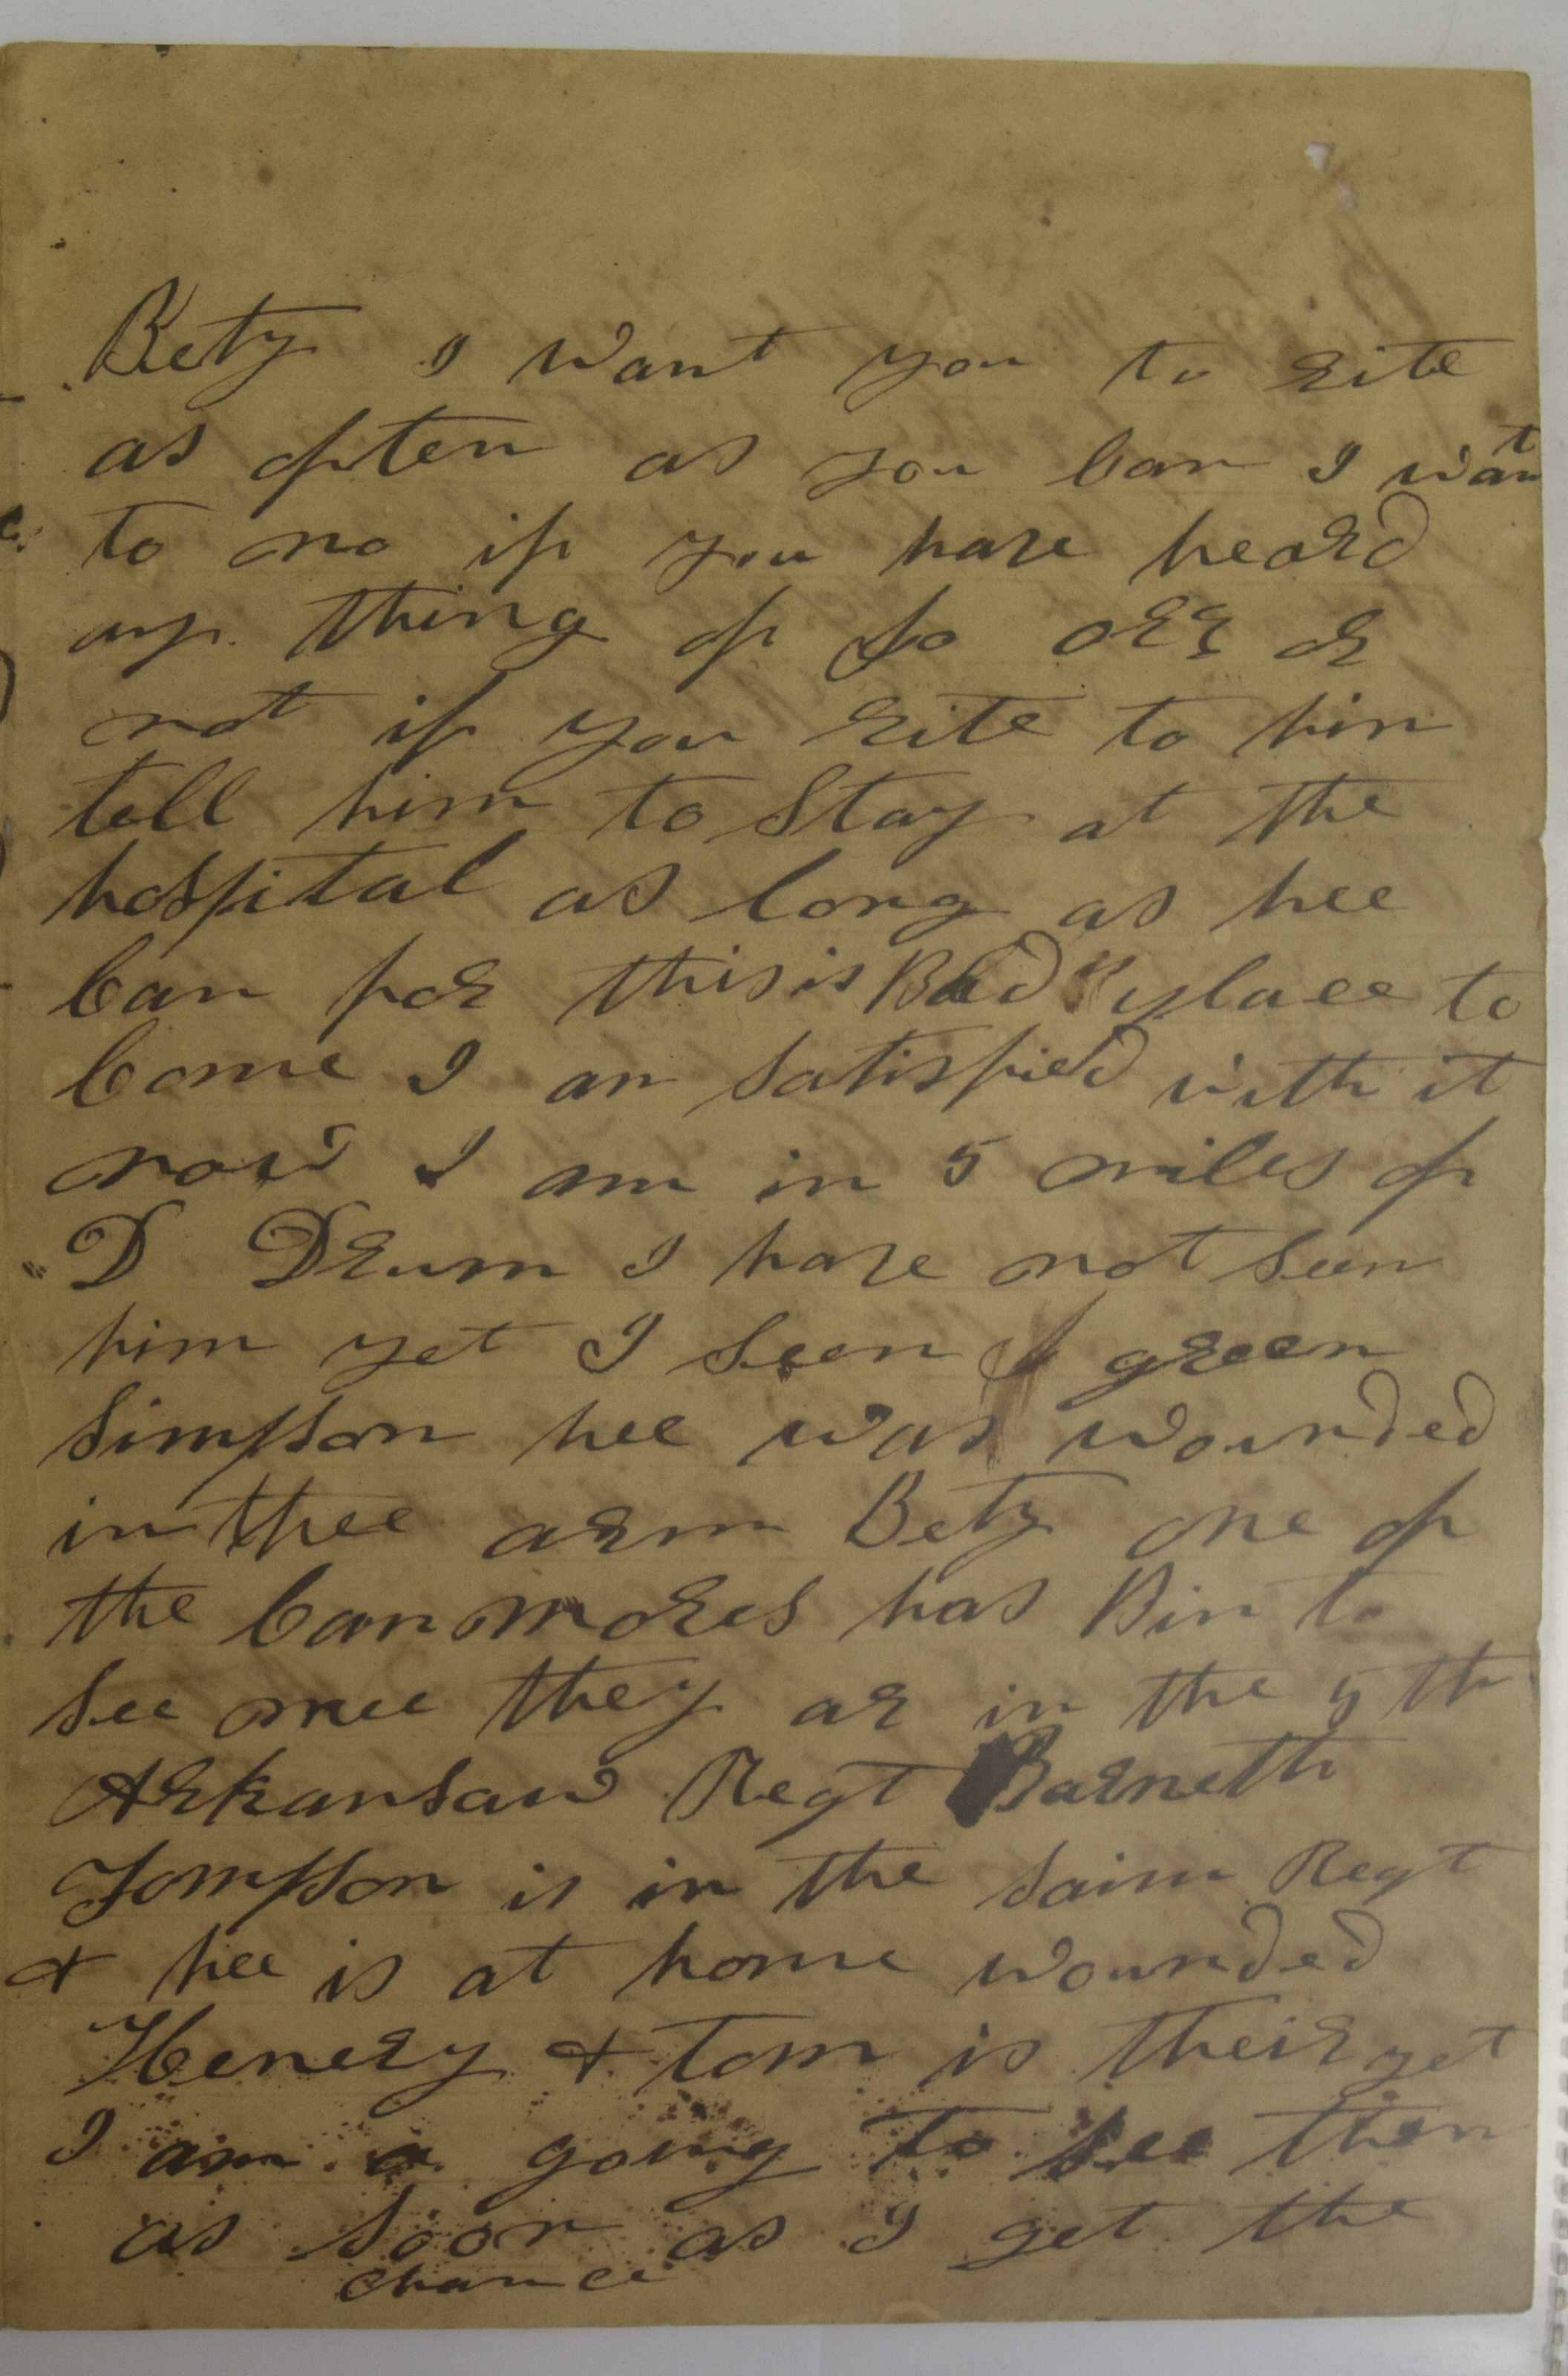 Bety I want you to rite
as often as you can I want
to no if you have heard
any thing of Jo orr or
not if you rite to him
tell him to Stay at the
hospital as long as hee
can for this is Bad place to
come I am satisfied with it
now I am in 5 miles of
D Drum I have not seen
him yet I seen J green
Simpson hee was wounded
in thee arm Bety one of
the Canmores has Bin to
see mee they ar in the 5th
Arkansaw Regt Barneth
Tompson is in the saim Regt
& hee is at home wounded
Henery & tom is their yet
I am a going to see them
as soon as I get the
chance